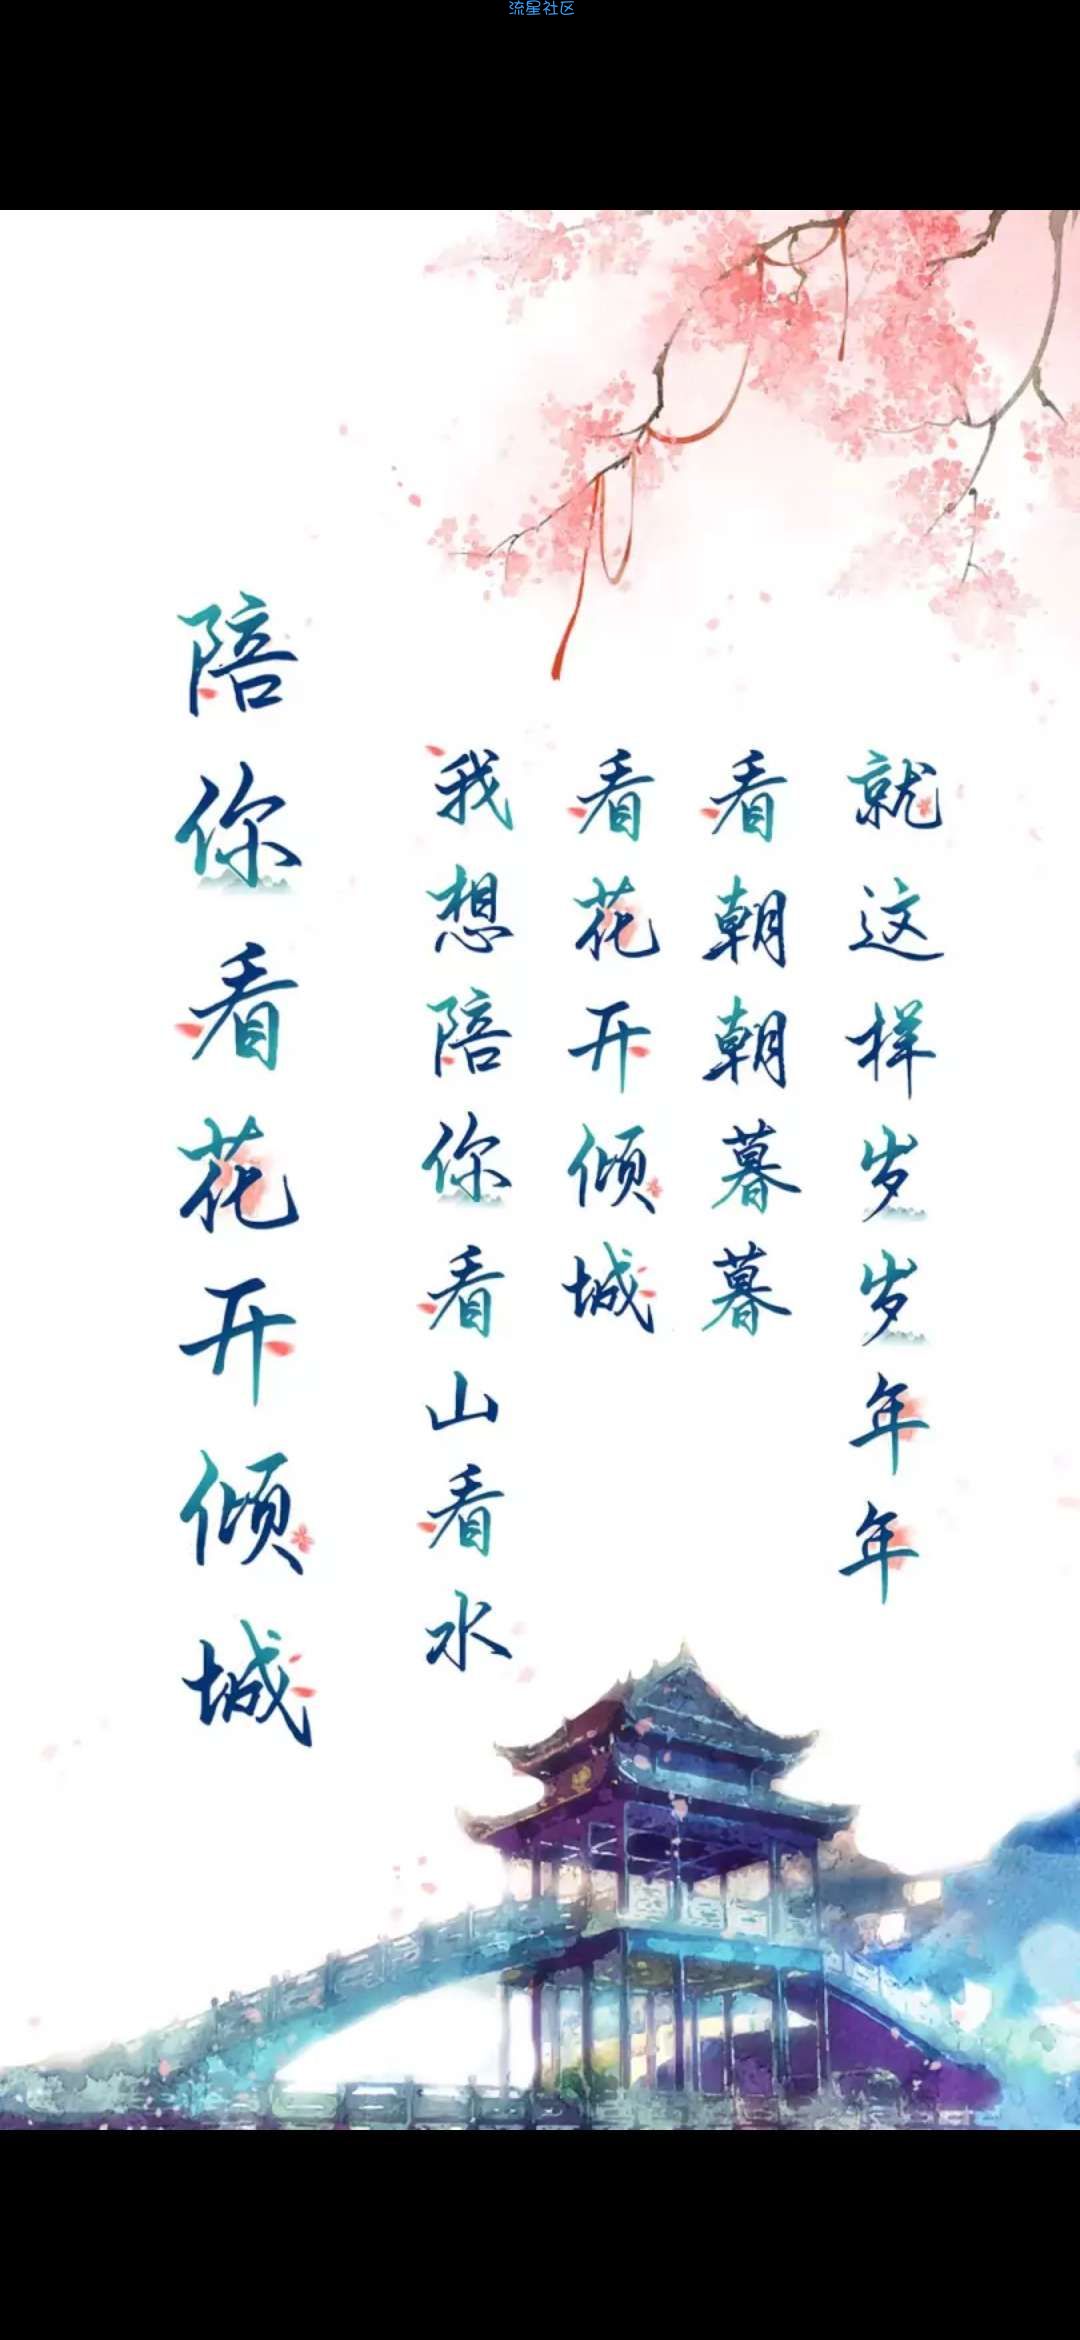 流星社区
陪你看花开倾城
我想陪你看山看水
看花开倾城
看朝朝暮暮
就这样岁岁年年